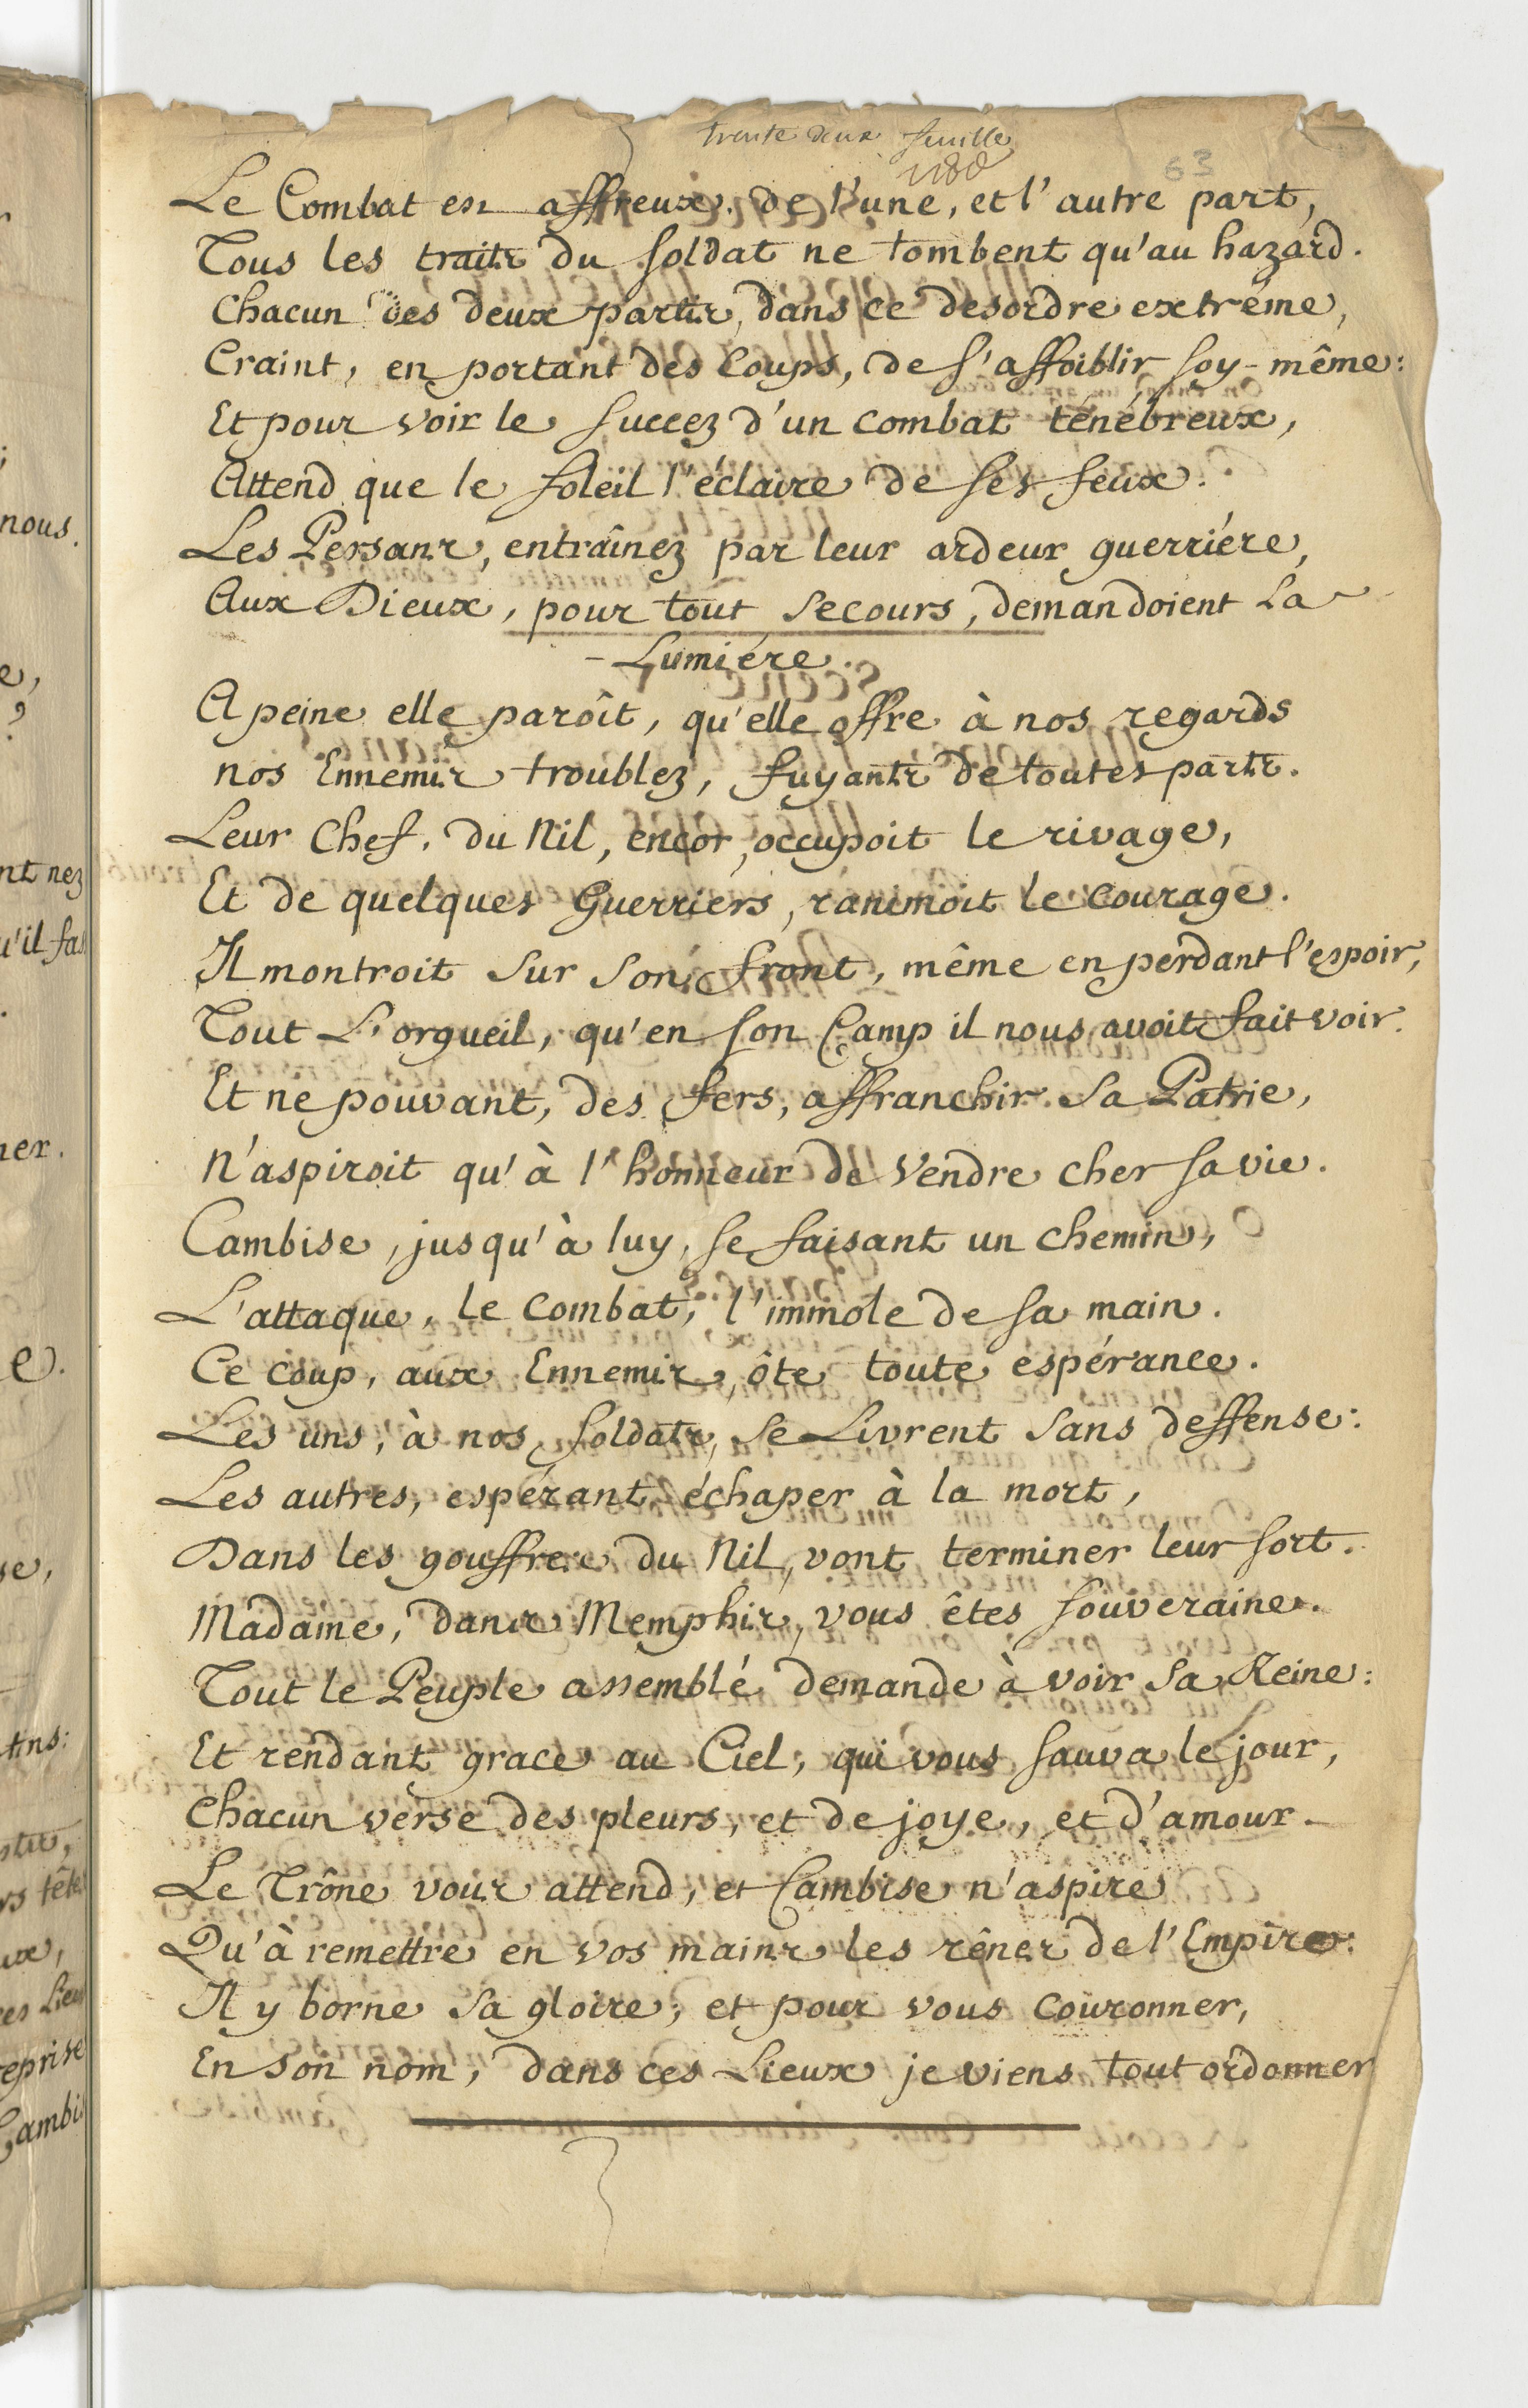 trente deux feuille
63
Le Combat est affreux. de l'une, et l'autre part,
Tous les traits du soldat ne tombent qu'au hazard.
Chacun des deux partis, dans ce desordre extrême,
Craint, en portant des Coups, de s'affoiblir soy-même:
Et pour voir le succez d'un combat ténébreux,
Attend que le soleil l'éclaire de ses feux.
Les Persans, entraînez par leur ardeur guerriére,
Aux Dieux, pour tout secours, demandoient La
- Lumiére.
A peine elle parôit, qu'elle offre à nos regards
nos Ennemis troublez, fuyants de toutes parts.
Leur Chef, du Nil, encor, occupoit le rivage,
Et de quelques Guerriers, ranimoit le courage.
Il montroit sur son front, même en perdant l'espoir,
Tout L'orgueil, qu'en son Camp il nous avoit fait voir.
Et ne pouvant, des fers, affranchir sa Patrie,
N'aspiroit qu'à l'honneur de vendre cher sa vie.
Cambise, jusqu'à luy, se faisant un chemin,
L'attaque, le combat, l'immole de sa main.
Ce coup, aux Ennemis, ôte toute espérance.
Les uns, à nos soldats, se Livrent sans deffense:
Les autres, espérant échaper à la mort,
Dans les gouffres du Nil, vont terminer leur sort.
Madame, dans Memphis, vous êtes souveraine.
Tout le Peuple assemblé demande à voir sa Reine:
Et rendant grace au Ciel, qui vous sauva le jour,
Chacun verse des pleurs, et de joye, et d'amour.
Le Trône vous attend, et Cambise n'aspire
Qu'à remettre en vos mains les rênes de l'Empire:
Il y borne sa gloire, et pour vous couronner,
En son nom, dans ces Lieux je viens tout ordonner